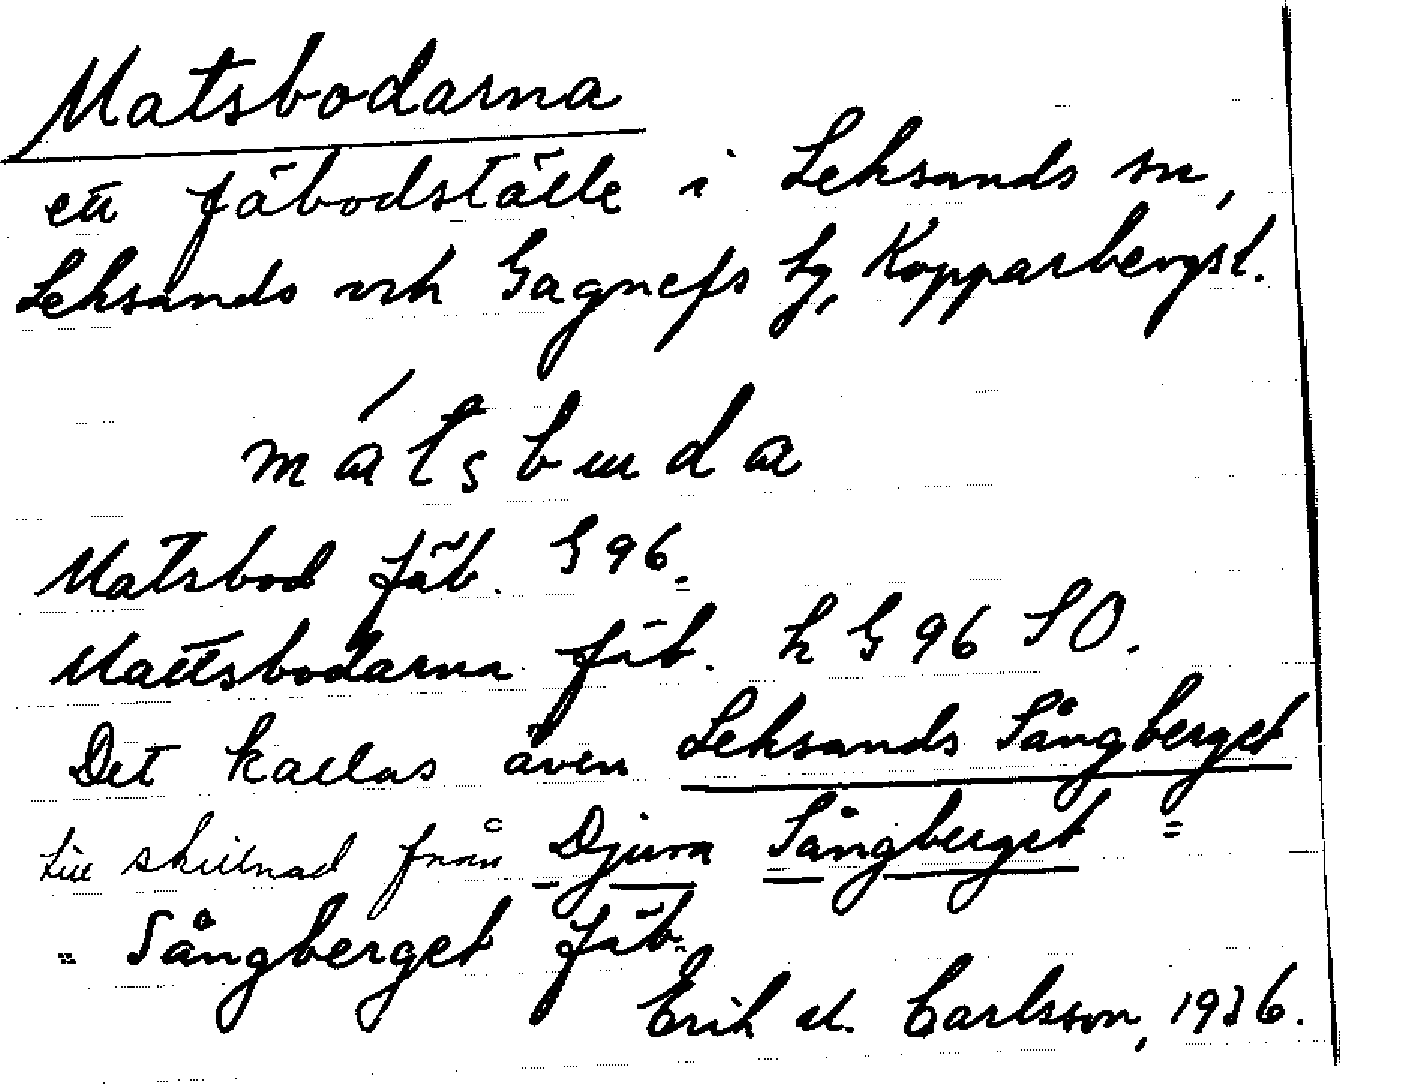 Matsbodarna
ett fäbodställe i Leksands sn,
Leksands och Gagnefs tg, Kopparbergsl.
mátsbuda
Matsbod fäb. G 96.
Mattsbodarna fäb. h G 96 SO.
Det kallas även Leksands Sångberget
till skillnad från Djura Sångberget =
= Sångberget fäb.
Erik M. Carlsson, 1936.